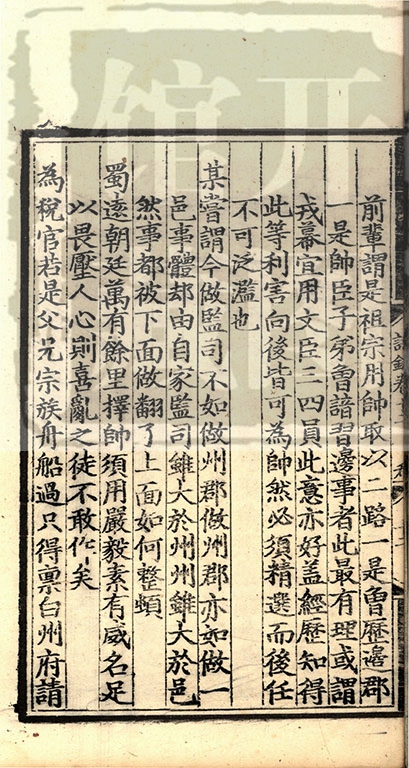 前輩謂是祖宗用帥取以二路一是曾歷邊郡
一是帥臣子弟曾諳習邊事者此最有理或謂
戎幕宜用文臣三四員此意亦好蓋經歷知得
此等利害向後皆可為帥然必須精選而後任
不可泛濫也
某嘗謂今做監司不如做州郡做州郡亦如做一
邑事體却由自家監司雖大於州州雖大於邑
然事都被下面做翻了上面如何整頓
蜀遠朝廷萬有餘里擇帥須用嚴毅素有威名足
以畏壓人心則喜亂之徒不敢作矣
為稅官若是父兄宗族舟船過只得稟白州府請